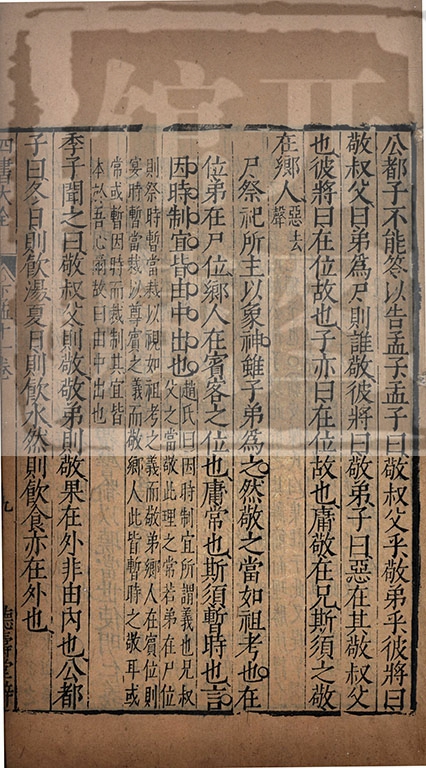 公都子不能答以告孟子孟子曰敬叔父乎敬弟乎彼將曰
敬叔父曰弟為尸則誰敬彼將曰敬弟子曰惡在其敬叔父
也彼將曰在位故也子亦曰在位故也庸敬在兄斯須之敬
在鄉人惡去聲
尸祭祀所主以象神雖子弟為之然敬之當如祖考也在
位弟在尸位鄉人在賓客之位也庸常也斯須暫時也言
因時制宜皆由中出也趙氏曰因時制宜所謂義也兄叔
父之當敬此理之常若弟在尸位
則祭時暫當裁以視如祖考之義而敬弟鄉人在賓位則
宴時暫當裁以尊賓之義而敬鄉人此皆暫時之敬耳或
常或暫因時而裁制其宜皆
本於吾心爾故曰由中出也
季子聞之曰敬叔父則敬敬弟則敬果在外非由內也公都
子曰冬日則飲湯夏日則飲水然則飲食亦在外也
四書大全
下孟十一卷
九
德壽堂梓